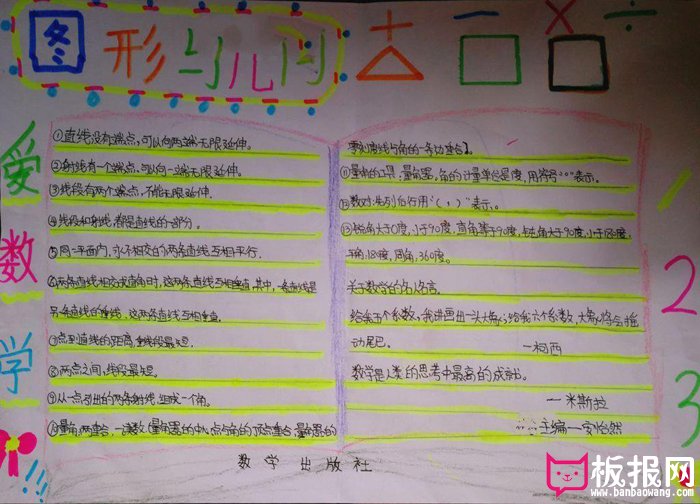 图形与几何
+ − × ÷
爱数学
①直线没有端点,可以向两端无限延伸。
②射线有一个端点,可以向一端无限延伸。
③线段有两个端点,不能无限延伸.
④线段和射线,都是直线的一部分。
⑤同一平面内,永不相交的两条直线互相平行.
⑥两条直线相交成直角时,这两条直线互相垂直,其中,一条直线是
另一条直线的垂线,这两条直线互相垂直.
⑦点到直线的距离,垂线段最短.
⑧两点之间,线段最短。
⑨从一点引出的两条射线,组成一个角。
⑩量角:两重合,一读数(量角器的中心点与角的顶点重合,量角器的
零刻度线与角的一条边重合).
⑪量角的工具:量角器,角的计量单位是度,用符号"°"表示。
⑫数对:先列后行用"( , )"表示.
⑬锐角大于0度,小于90度,直角等于90度,钝角大于90度,小于180度,
平角:18度,周角:360度.
关于数学的名人名言.
给我五个系数,我讲画出一头大象;给我六个系数,大象将会摇
动尾巴.
—柯西
数学是人类的思考中最高的成就.
—米斯拉
主编—安怡然
数学出版社
1
2
3
板报网
www.banbaowang.com